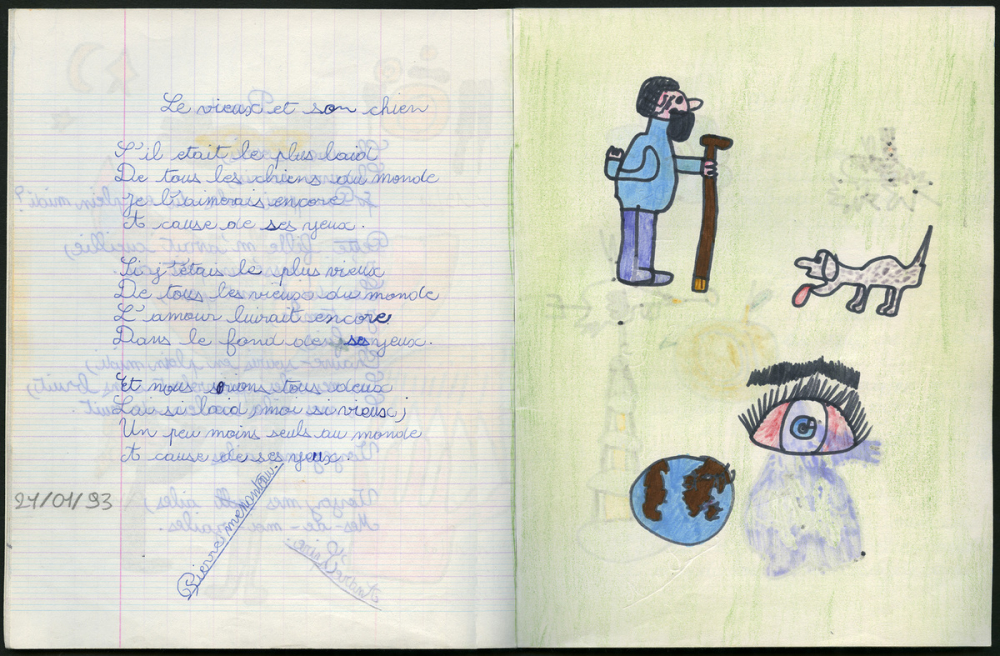 Le vieux et son chien
S'il etait le plus laid
De tous les chiens du monde
Je l'aimerais encore
A cause de ses yeux.
Si j'étais le plus vieux
De tous les vieux du monde
L'amour luirait encore
Dans le fond de ses yeux.
Et nous serions tous deux
Lui si laid, moi si vieux,
Un peu moins seuls au monde
A cause de ses yeux
21/01/93
Pierre menanteau